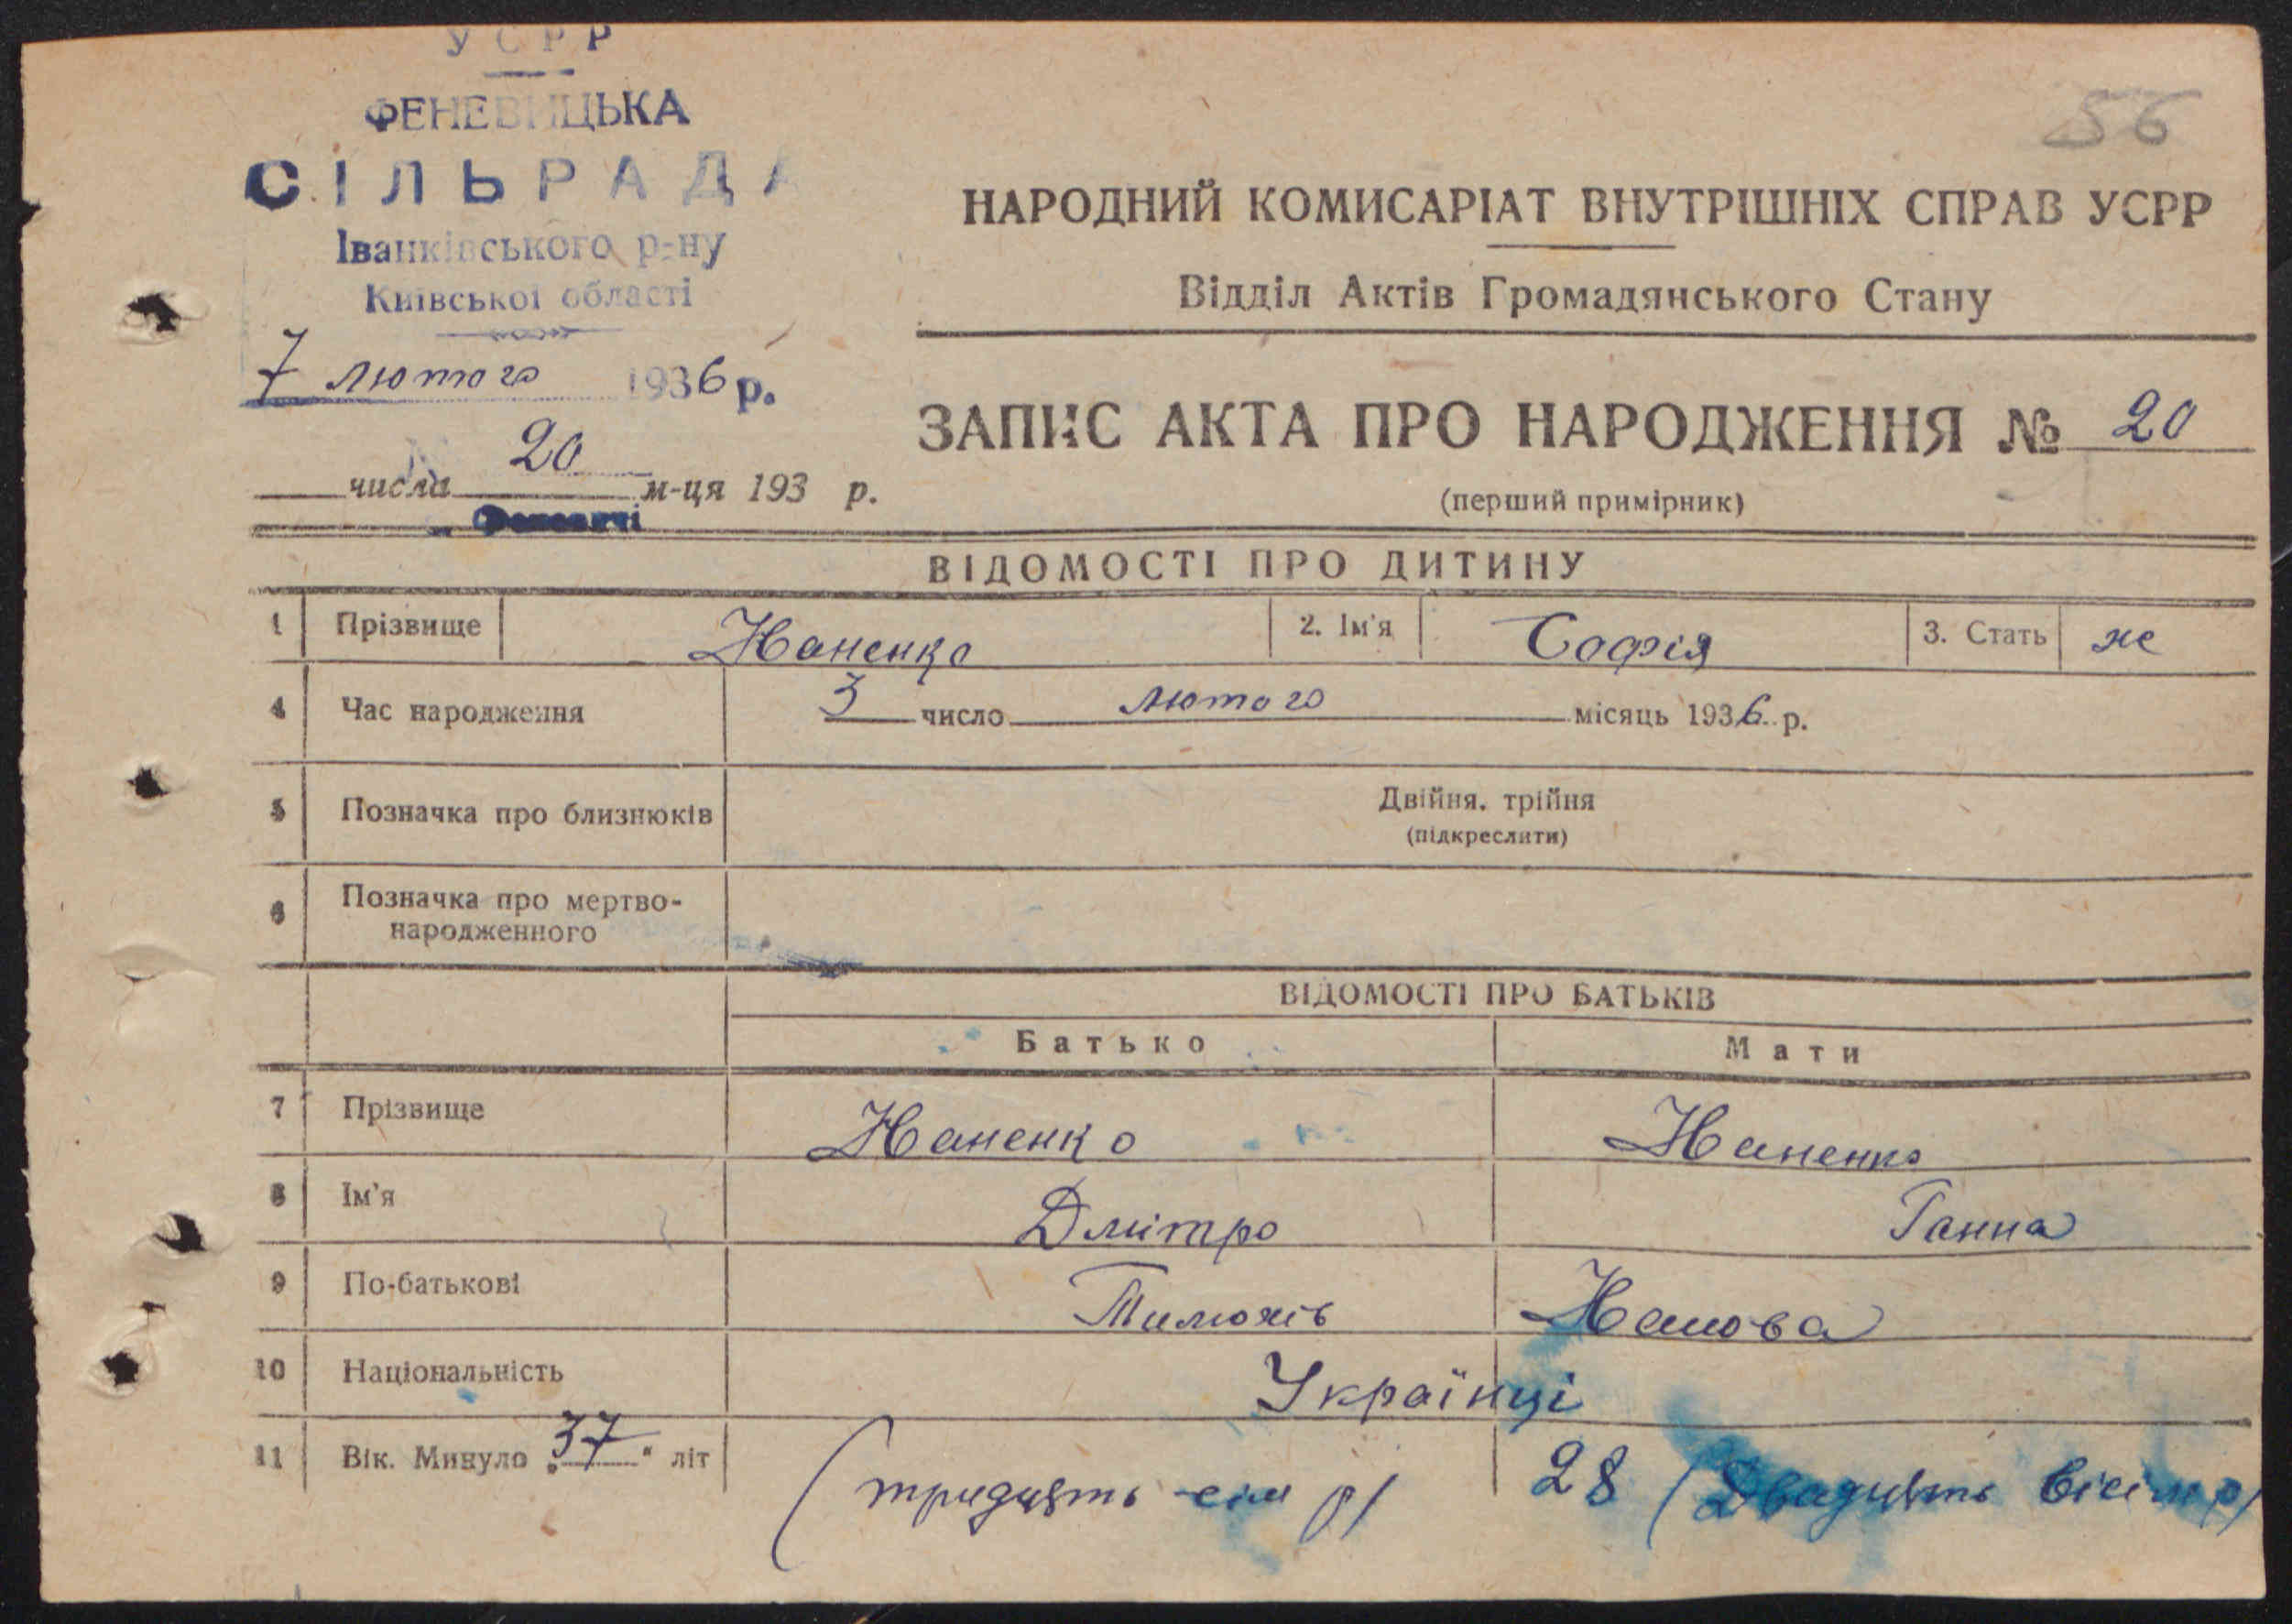 УСРР
ФЕНЕВИЦЬКА
СІЛЬРАДА
Іванківського р-ну
Київської області
7 лютого 1936 р.
20
числа м-ця 193 р.
56
НАРОДНИЙ КОМИСАРІАТ ВНУТРІШНІХ СПРАВ УСРР
Відділ Актів Громадянського Стану
ЗАПИС АКТА ПРО НАРОДЖЕННЯ № 20
(перший примірник)
ВІДОМОСТІ ПРО ДИТИНУ
1 Прізвище Наненко 2. Ім'я Софія 3. Стать ж
4 Час народження 3 число лютого місяць 1936 р.
5 Позначка про близнюків Двійня, трійня
(підкреслити)
6 Позначка про мертво-
народженного
ВІДОМОСТІ ПРО БАТЬКІВ
Батько Мати
7 Прізвище Наненко Наненко
8 Ім'я Дмітро Ганна
9 По-батькові
10 Національність Українці
11 Вік. Минуло „37“ літ (тридцять сім р) 28 (Двадцять вісім р)